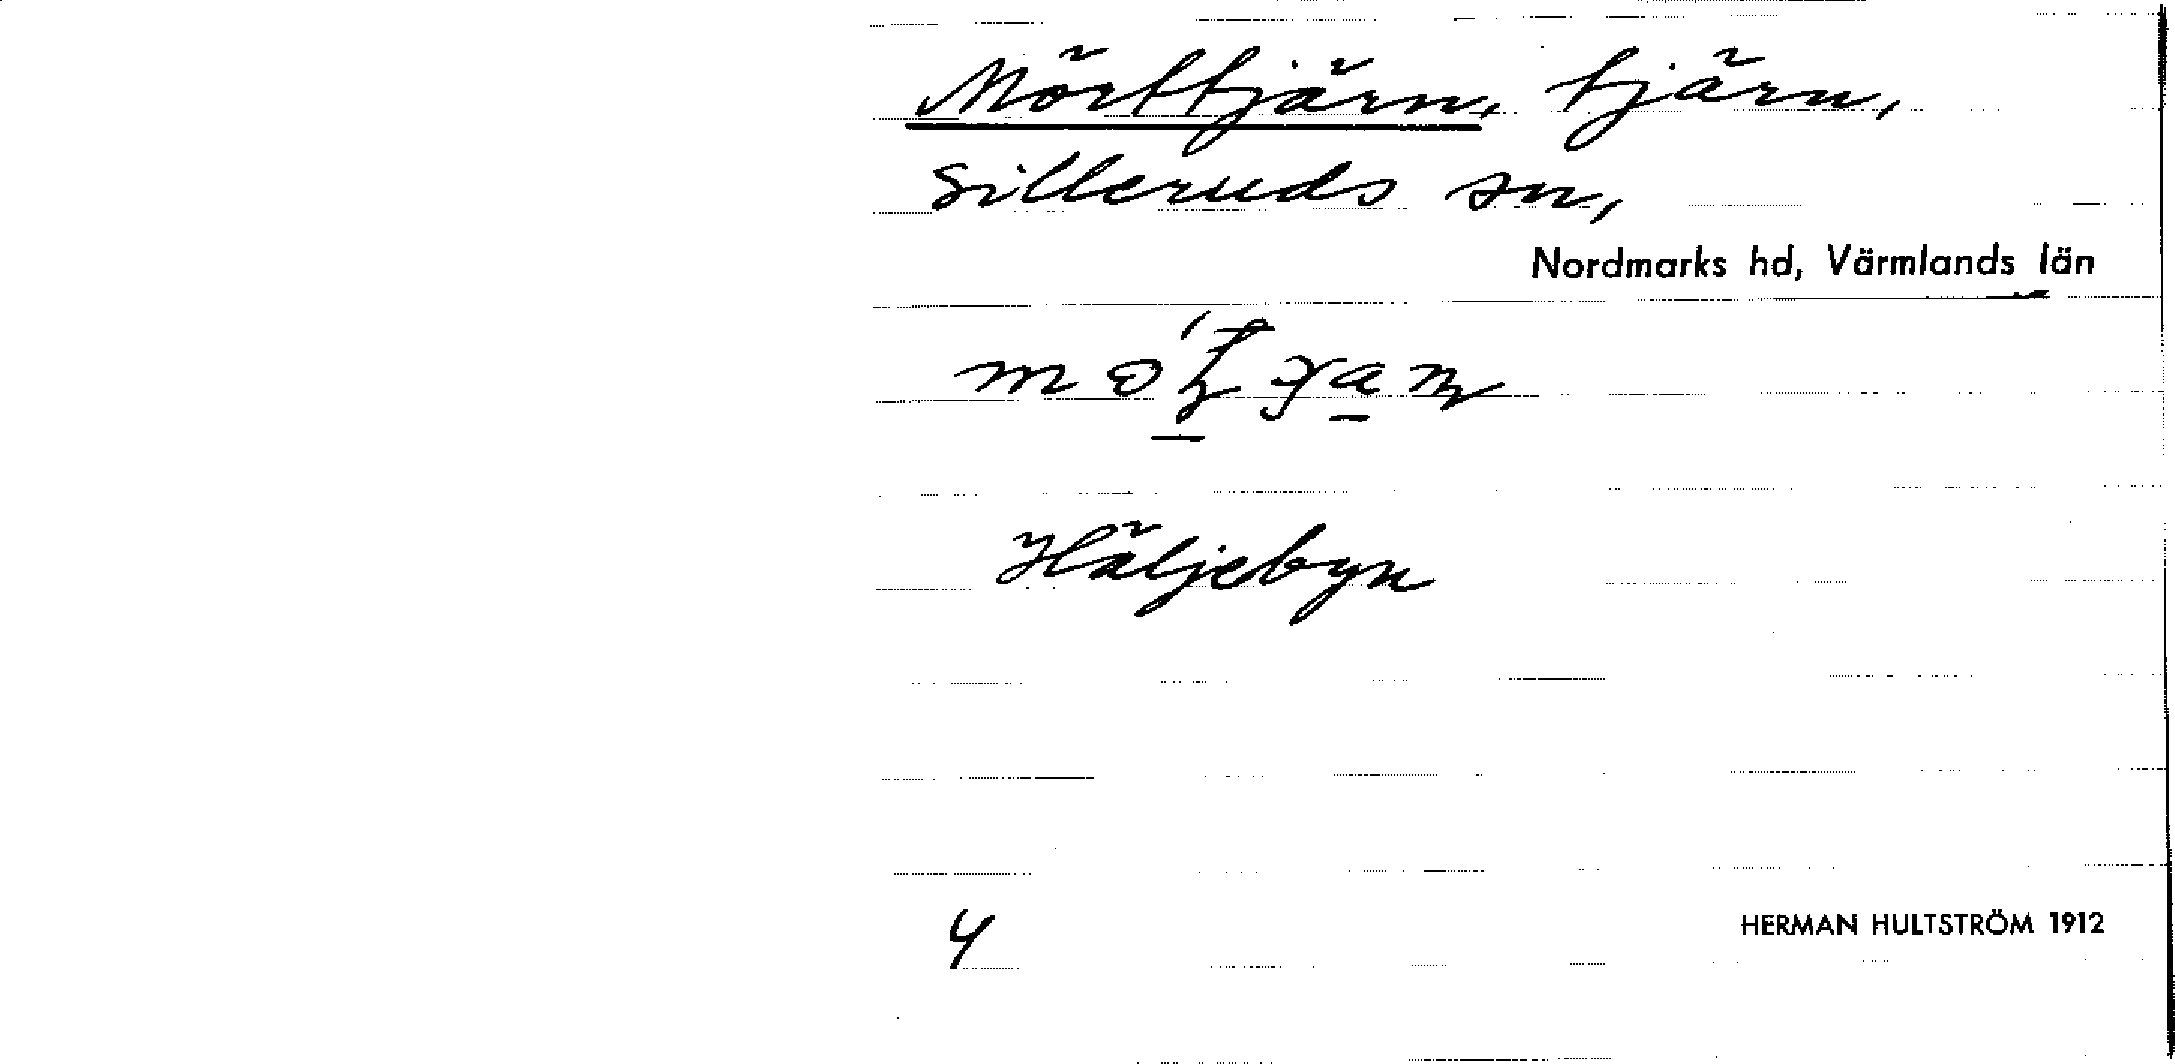 Mörttjärn, tjärn,
Silleruds sn,
Nordmarks hd, Värmlands län
Häljebyn
4
HERMAN HULTSTRÖM 1912